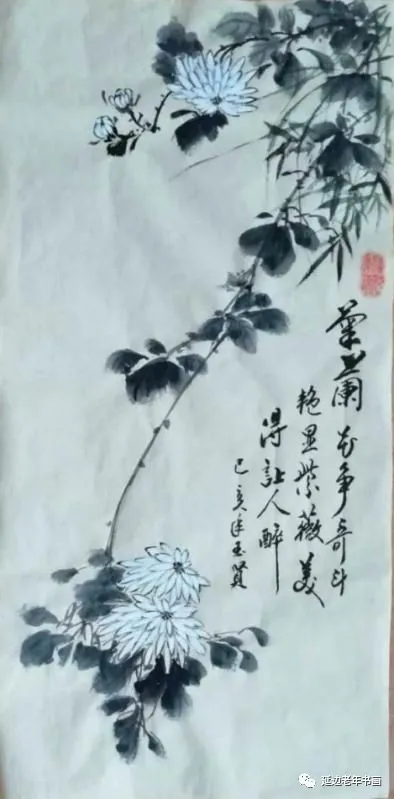 菊兰花争奇斗
艳显紫薇美
得让人醉
己亥年玉贤
延边老年书画